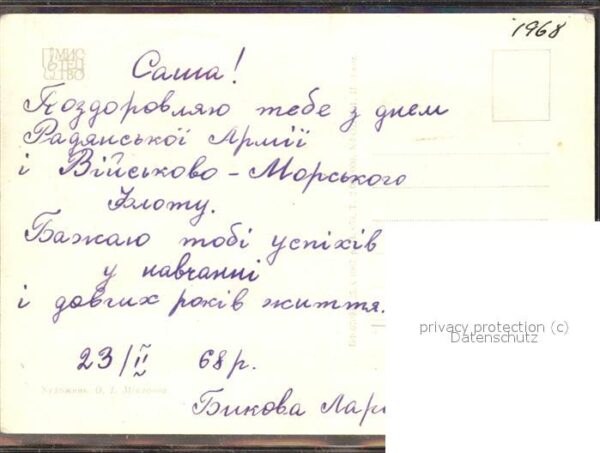 1968
МИС
ТЕЦ
ТВО
Саша!
Поздоровляю тебе з днем
Радянської Армії
і Військово-Морського
Флоту.
Бажаю тобі успіхів
у навчанні
і довгих років життя.
23/II 68 р.
Художник О. І.
Бикова Лар
privacy protection (c)
Datenschutz